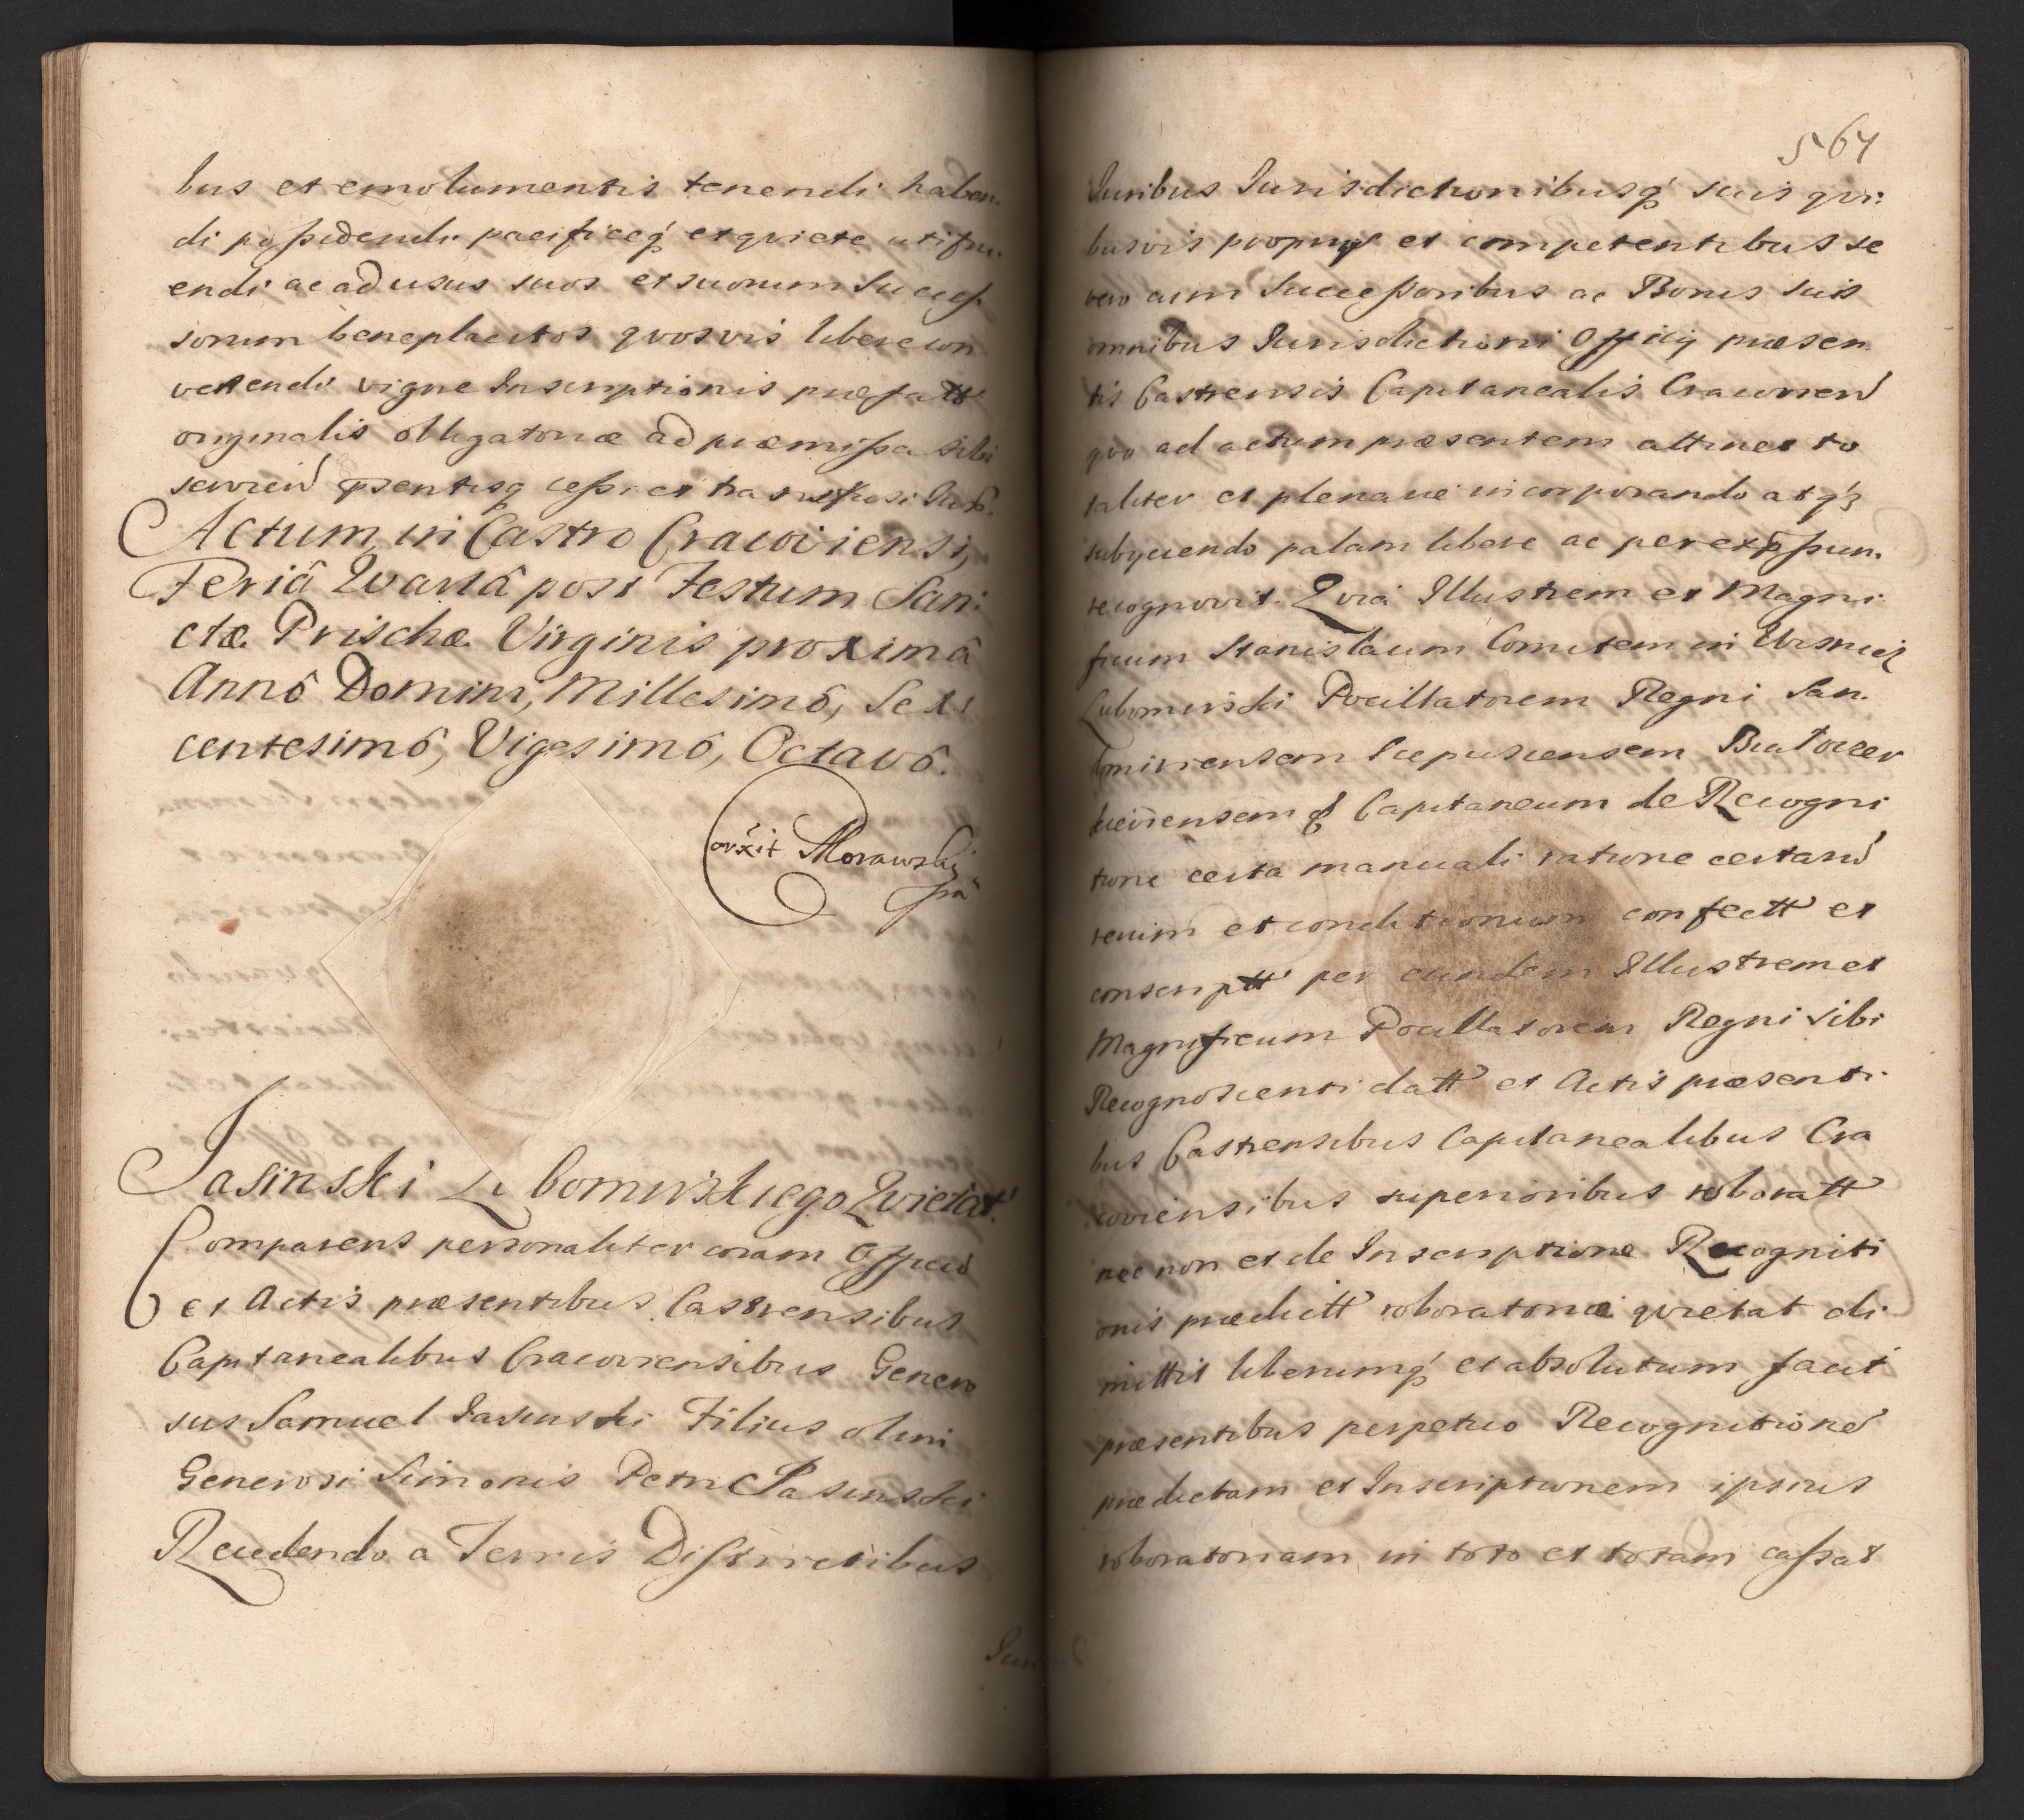 bus et emolumentis tenendi haben-
di possidendi pacificeq́ et qviete utifru-
endi ac ad usus suos et suorum Succes-
sorum beneplacitos qvosvis libere con
vertendi vigore Inscriptionis præfatt
originalis obligatoriæ ad præmissa sibi
servien psentisq cessi et transfusi Iuris.
Actum in Castro Cracoviensi,
Feriâ Qvartâ post Festum San:
ctæ Prischæ Virginis proximâ
Annô Domini, Millesimô, Sex:
centesimô, Vigesimô, Octavô.
Corxit Morawski
Jasinski Lubomirskiego Qvietat.
Comparens personaliter coram Officio
et Actis præsentibus Castrensibus
Capitanealibus Cracoviensibus Genero
sus Samuel Jasinski Filius olim
Generosi Simonis Petri Jasinski
Recedendo a Terris Districtibus
Juri
567
Iuribus Iurisdictionibusq́ suis qvi:
busvis proprijs et competentibus se
vero cum Successoribus ac Bonis suis
omnibus Iurisdictioni Officij præsen-
tis Castrensis Capitanealis Cracovien
qvo ad actum præsentem attinet to
taliter et plenarie incorporando atq3
subijciendo palam libere ac per expssum
recognovit. Qvia Illustrem et Magni
ficum Stanislaum Comitem in Wisnicz
Lubomirski Pocillatorem Regni San-
domiriensem Scepusiensem Białocer
kieviensem q Capitaneum de Recogni
tione certa manuali ratione certarū
rerum et conditionum confectt et
conscriptt per eundem Illustrem et
Magnificum Pocillatorem Regni sibi
Recognoscenti datt et Actis præsenti-
bus Castrensibus Capitanealibus Cra
coviensibus superioribus roboratt
nec non et de Inscriptione Recogniti
onis prædictt roboratoria qvietat di
mittit liberumq́ et absolutum facit
præsentibus perpetuo Recognitione
prædictam et Inscriptionem ipsius
roboratoriam in toto et totam cassat